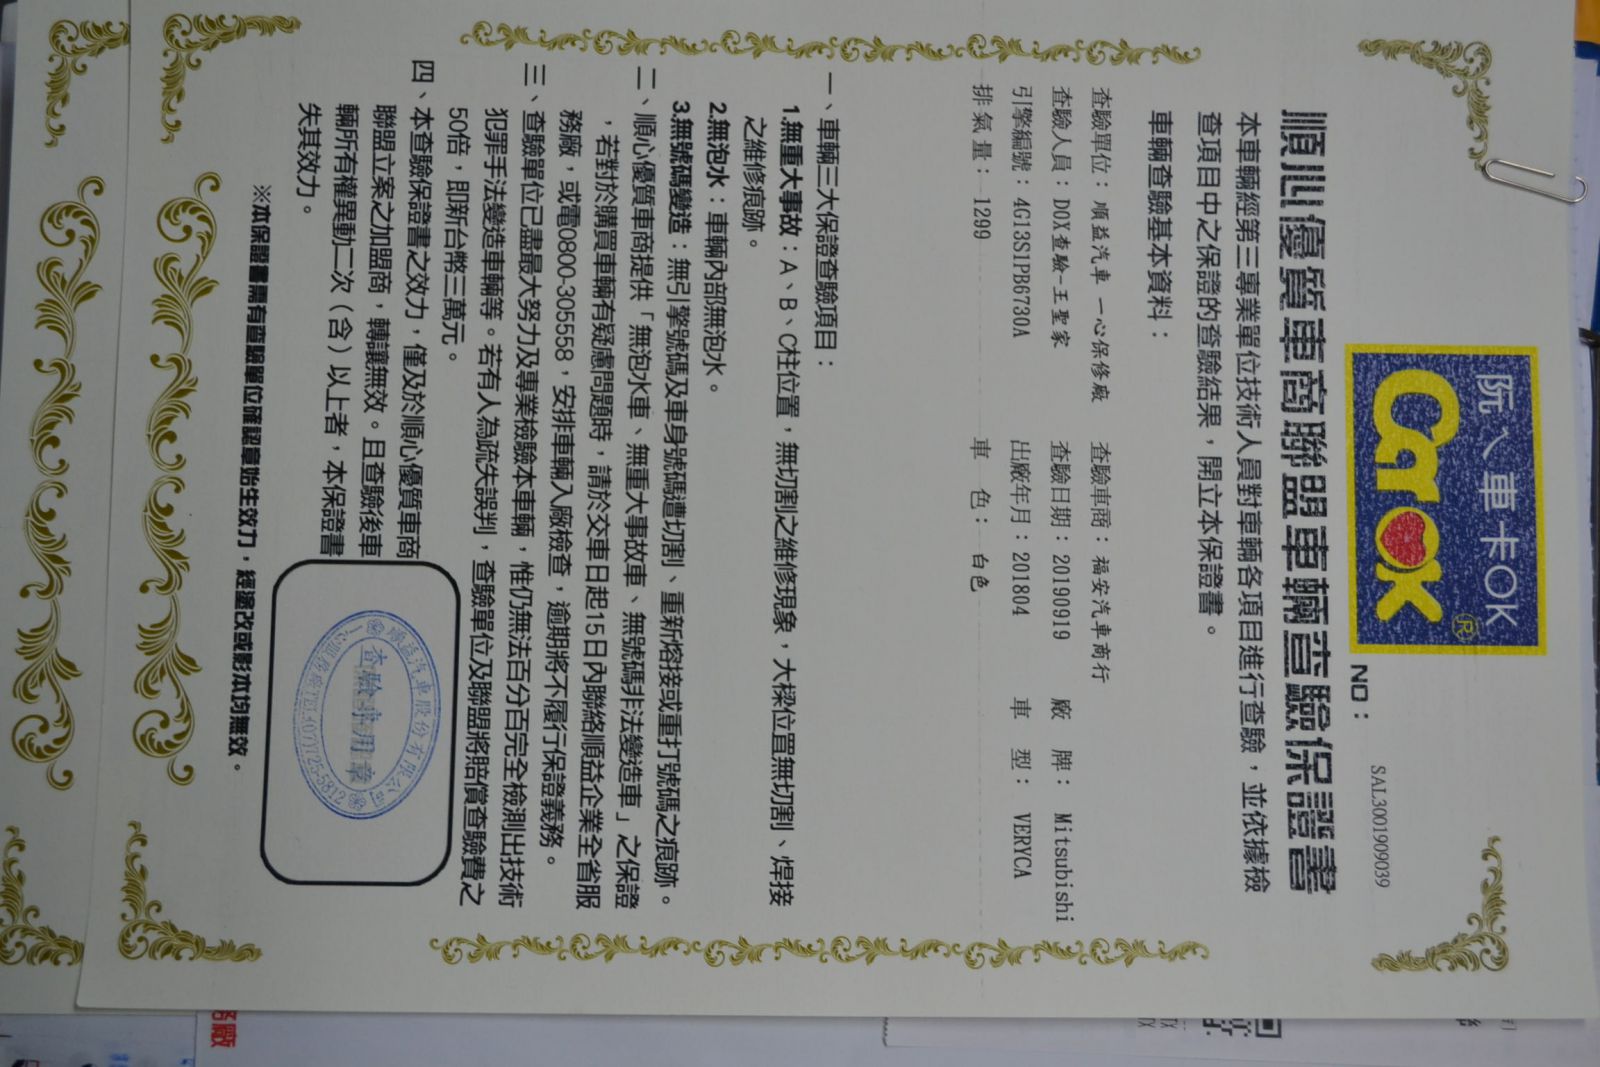 阮ㄟ車卡OK
CarOK®
NO：
SAL3001909039
順心優質車商聯盟車輛查驗保證書
本車輛經第三專業單位技術人員對車輛各項目進行查驗，並依據檢
查項目中之保證的查驗結果，開立本保證書。
車輛查驗基本資料：
查驗單位：順益汽車 一心保修廠 查驗車商：福安汽車商行
查驗人員：DOX查驗-王聖家 查驗日期：20190919 廠 牌：Mitsubishi
引擎編號：4G13S1PB6730A 出廠年月：201804 車 型：VERYCA
排氣量：1299 車 色：白色
一、車輛三大保證查驗項目：
1.無重大事故：A、B、C柱位置，無切割之維修現象，大樑位置無切割、焊接
之維修痕跡。
2.無泡水：車輛內部無泡水。
3.無號碼變造：無引擎號碼及車身號碼遭切割、重新熔接或重打號碼之痕跡。
二、順心優質車商提供「無泡水車、無重大事故車、無號碼非法變造車」之保證
，若對於購買車輛有疑慮問題時，請於交車日起15日內聯絡順益企業全省服
務廠，或電0800-305558，安排車輛入廠檢查，逾期將不履行保證義務。
三、查驗單位已盡最大努力及專業檢驗本車輛，惟仍無法百分百完全檢測出技術
犯罪手法變造車輛等。若有人為疏失誤判，查驗單位及聯盟將賠償查驗費之
50倍，即新台幣三萬元。
四、本查驗保證書之效力，僅及於順心優質車商
聯盟立案之加盟商，轉讓無效。且查驗後車
輛所有權異動二次（含）以上者，本保證書
失其效力。
順益汽車股份有限公司
查驗專用章
※本保證書需有查驗單位確認章始生效力，經塗改或影本均無效。
務廠